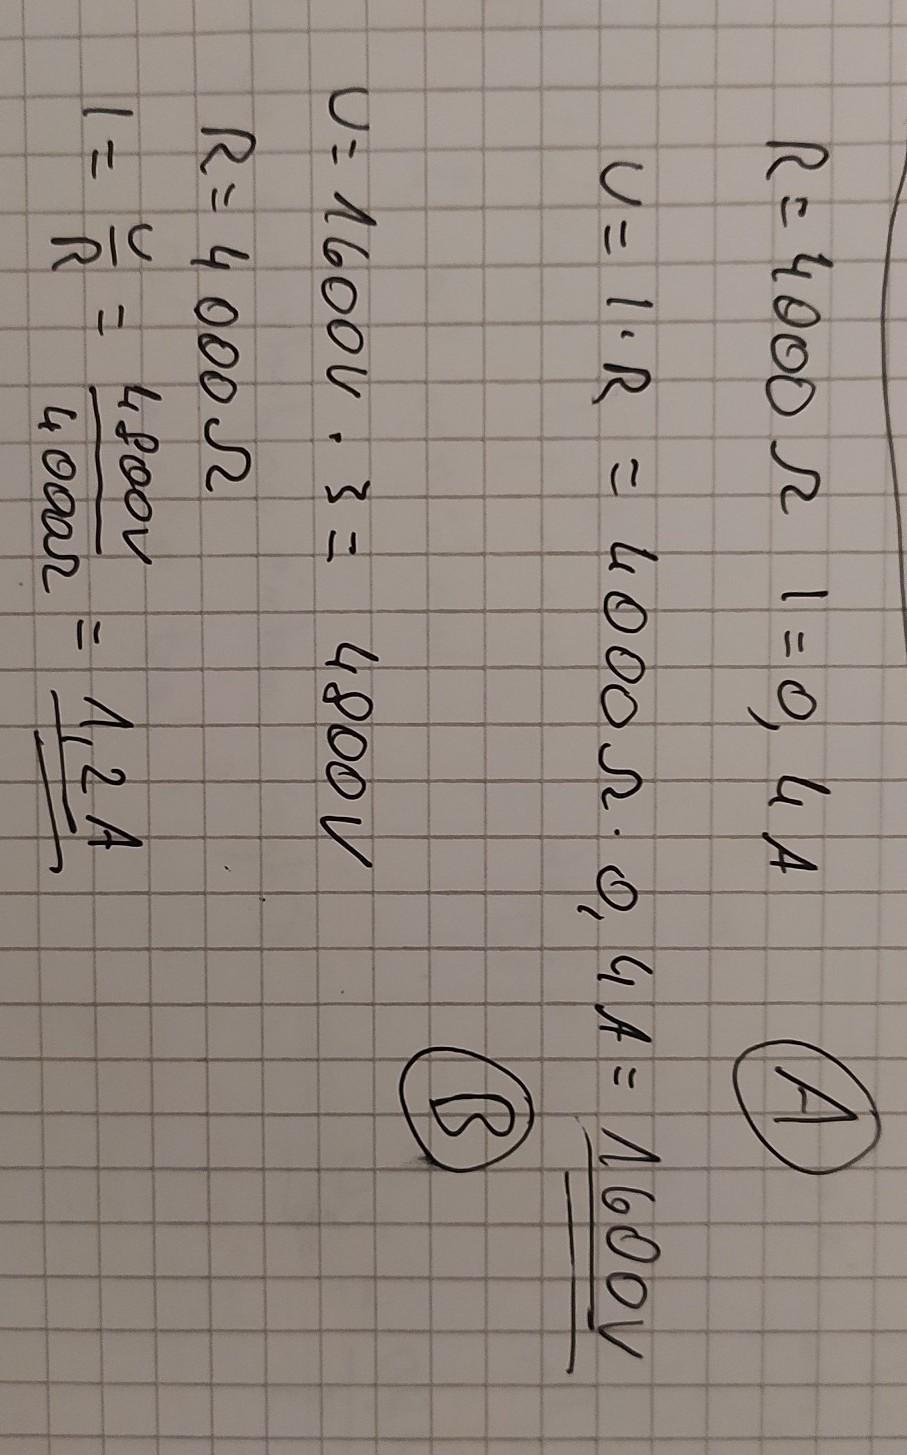 R = 4000 Ω I = 0,4 A
A
U = I · R = 4000 Ω · 0,4 A = 1600 V
B
U = 1600 V · 3 = 4800 V
R = 4000 Ω
I = U/R = 4800 V/4000 Ω = 1,2 A